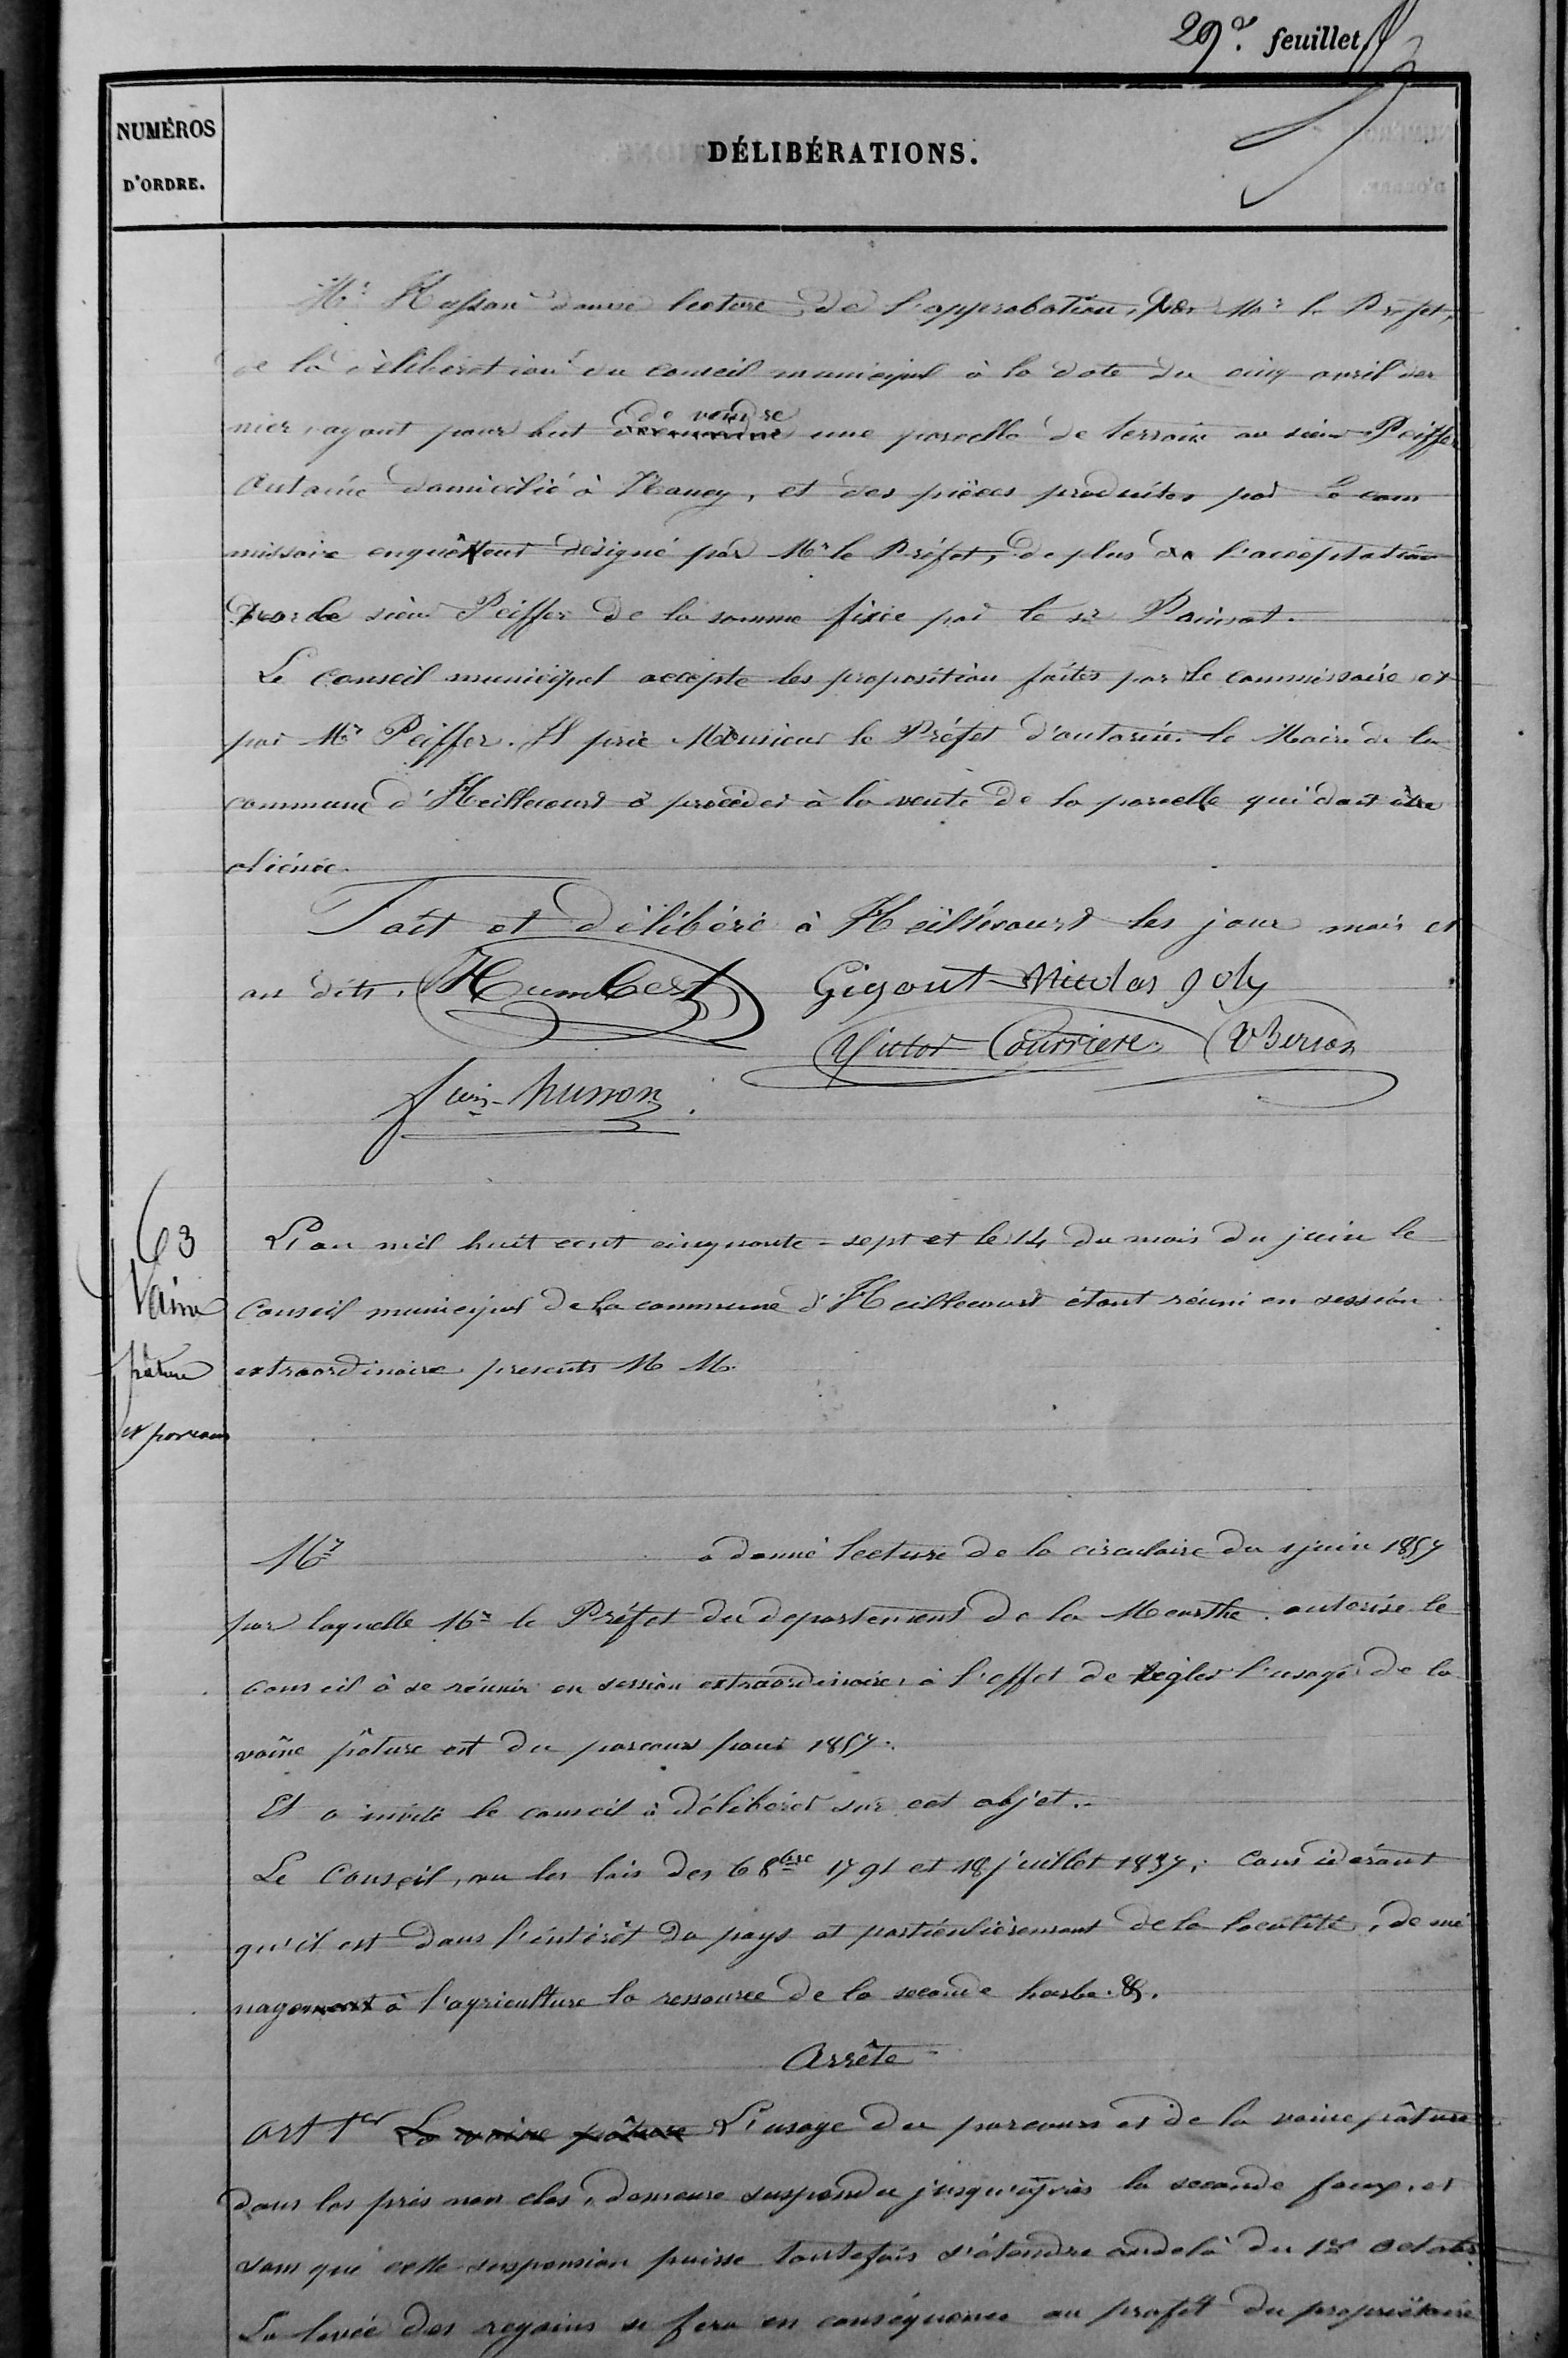 29e. feuillet
NUMÉROS
D'ORDRE.
DÉLIBÉRATIONS.
Mr Husson donne lecture, de l'approbation, par Mr le Préfet,
de la délibération du conseil municipal à la date du cinq avril der
nier, ayant pour but de vendre une parcelle de terrain au sieur Peiffer
Antoine domicilié à Nancy, et des pièces produites par le com
missaire enquêteur désigné par Mr le Préfet, de plus de l'acceptation
par le sieur Peiffer de la somme fixée par le sr
Le conseil municipal accepte les proposition faites par le commissaire et
par Mr Peiffer. Il prie Monsieur le Préfet d'autoriser le Maire de la
commune d'Heillecourt à procéder à la vente de la parcelle qui doit être
aliénée.
Fait et délibéré à Heillecourt les jour mois et
an dits. Humbert Gigout Nicolas Joly
Victor Courriere VBerson
husson
63 L'an mil huit cent cinquante-sept et le 14 du mois du juin le
Vaine conseil municipal de la commune d'Heillecourt étant réuni en session
pâture extraordinaire presents M M.
et parcours
Mr a donné lecture de la circulaire du 1 juin 1857
par laquelle Mr le Préfet du departement de la Meurthe. autorise le
conseil à se réunir en session extraordinaire, à l'effet de régler l'usage de la
vaine pâture est du parcours pour 1857.
Et a invité le conseil à délibérer sur cet objet.
Le Conseil, vu les lois des 6 8bre 1791 et 18 juillet 1837; considérant
qu'il est dans l'intérêt du pays et particulièrement de la localité, de mé
nagement à l'agriculture la ressource de la seconde herbe. &.
Arrête
Art 1er La vaine pâture L'usage du parcours et de la vaine pâture
dans les prés non clos, demeure suspendu jusqu'après la seconde faux, et
sans que cette suspension puisse toutefois s'étendre audelà du 1er octobre.
La levée des regains se fera en conséquence au profit du propriétaire